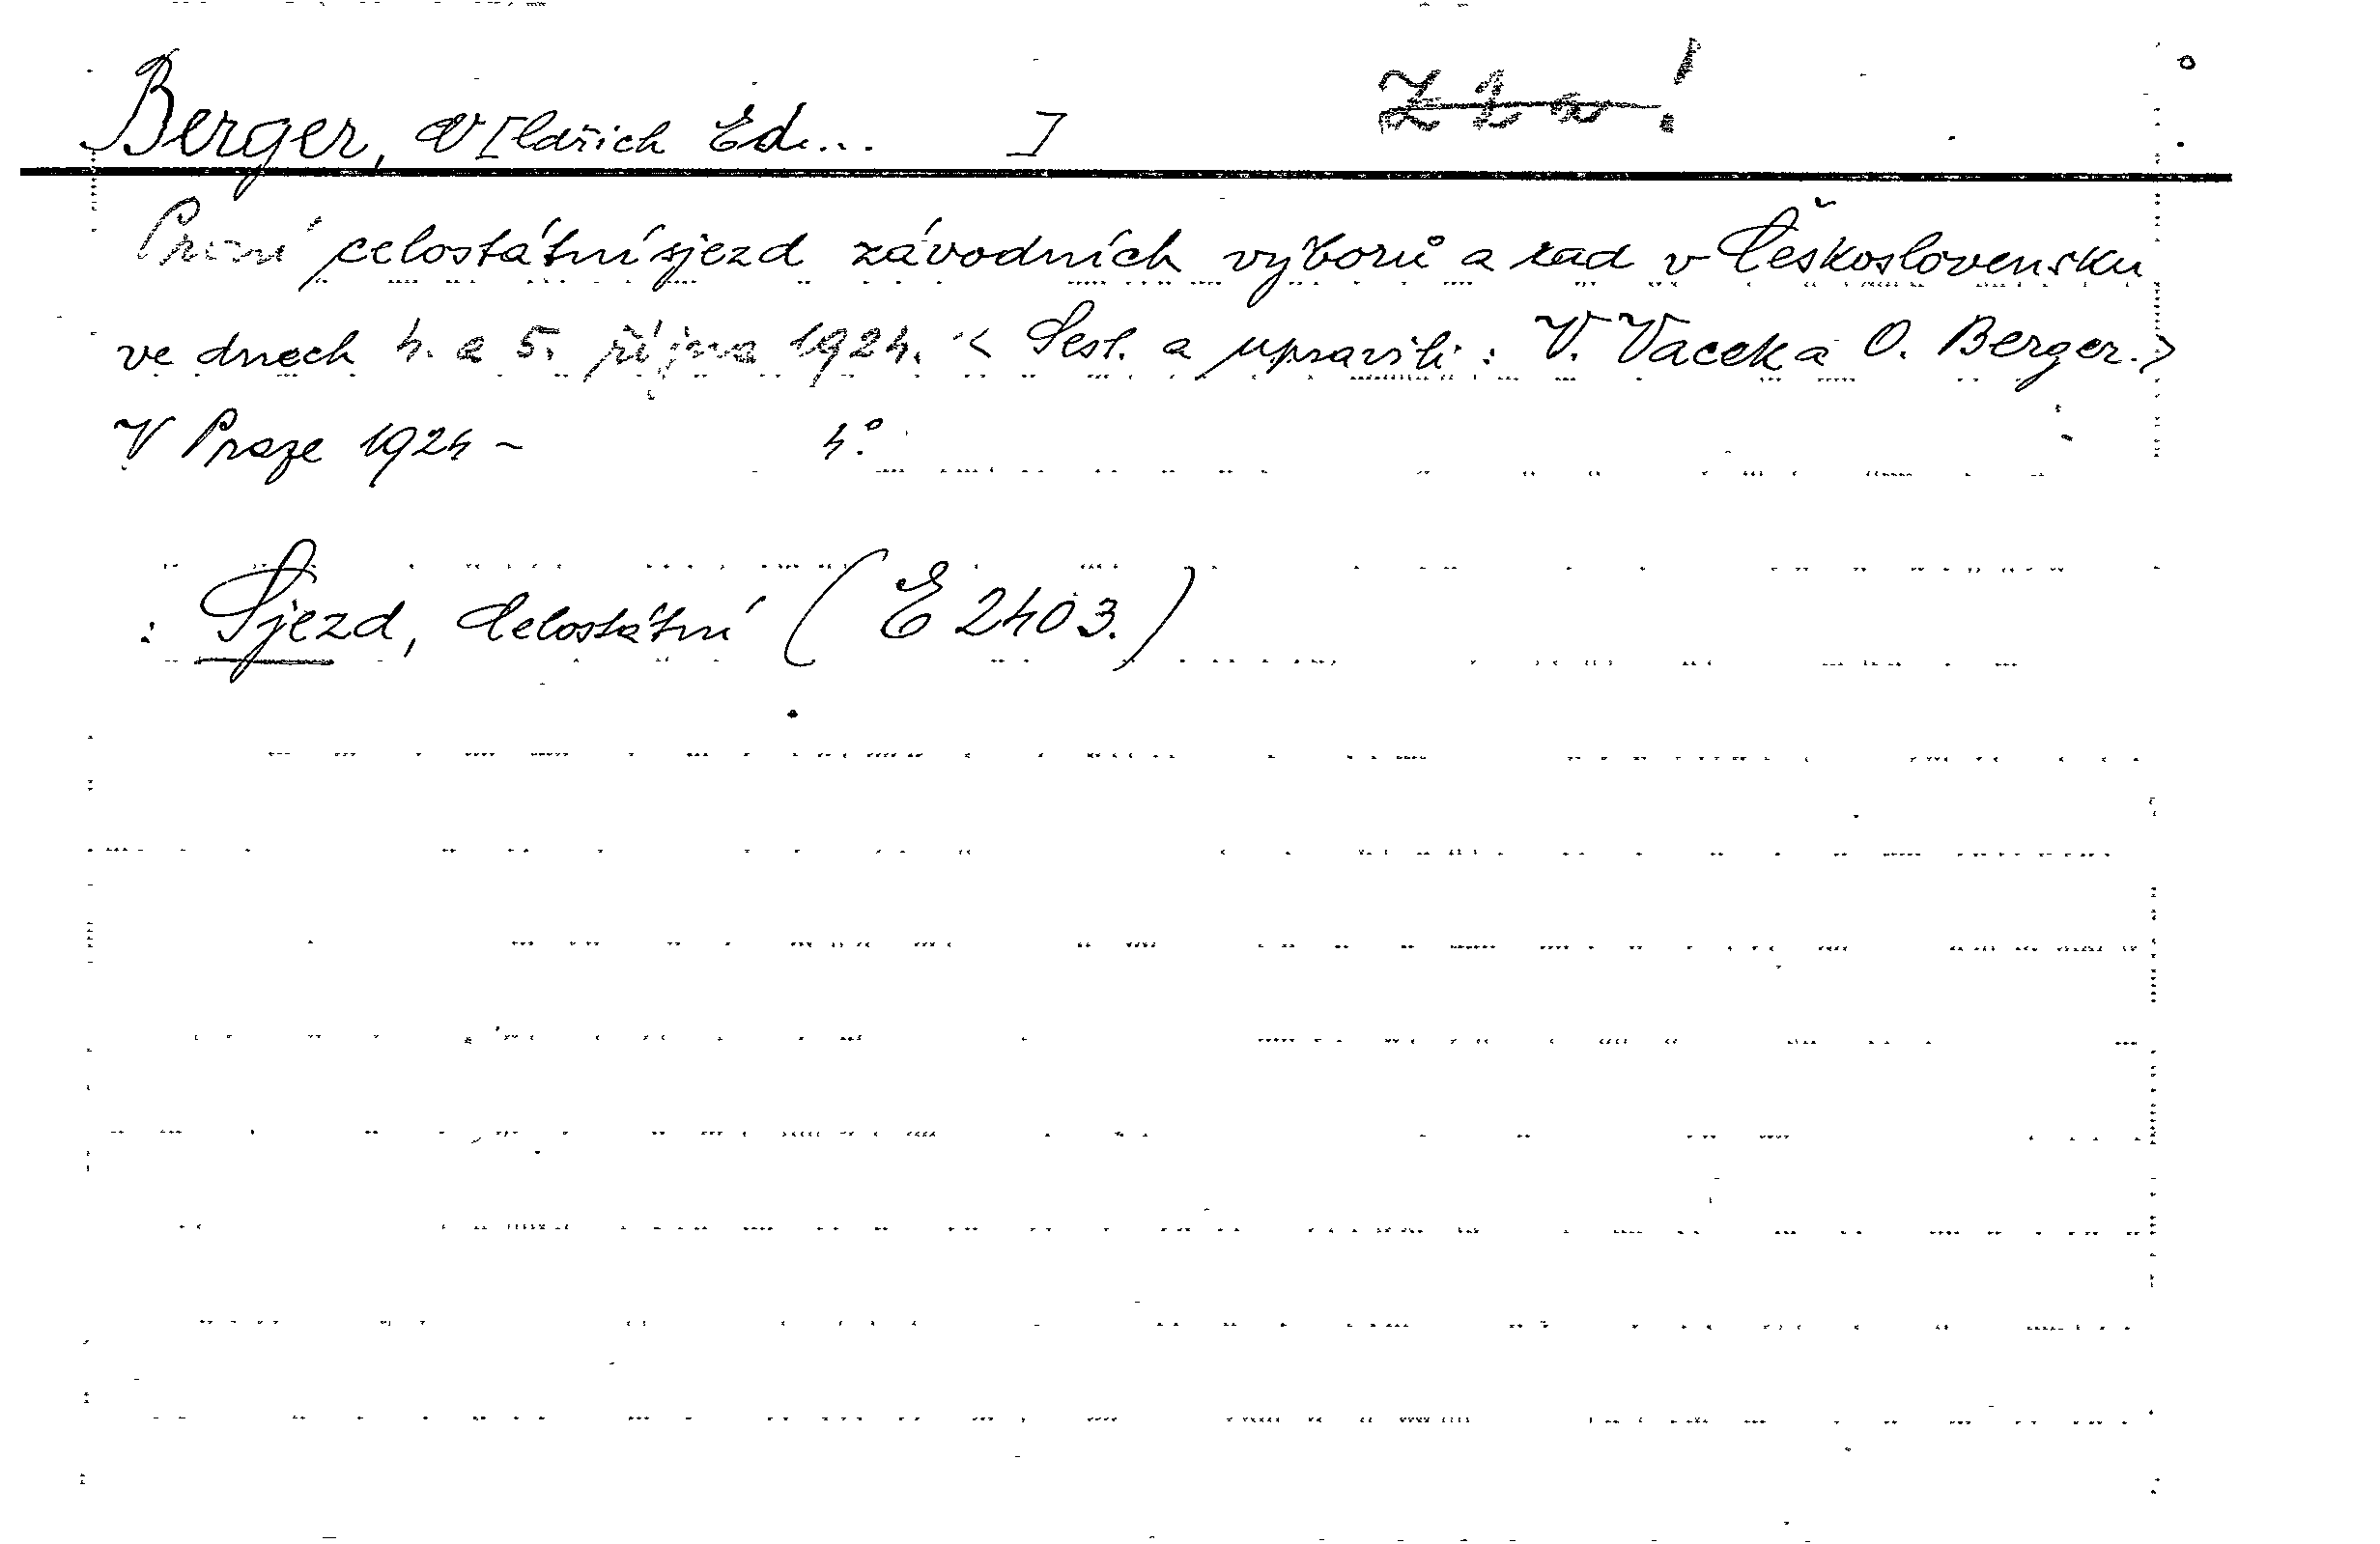 Berger, O[ldřich Ed... ]
První celostátní sjezd závodních výborů a rad v Československu
ve dnech 4. a 5. října 1924. < Sest. a upravili: V. Vacek a O. Berger.>
V Praze 1924 - 4°.
: Sjezd, celostátní (E 2403.)